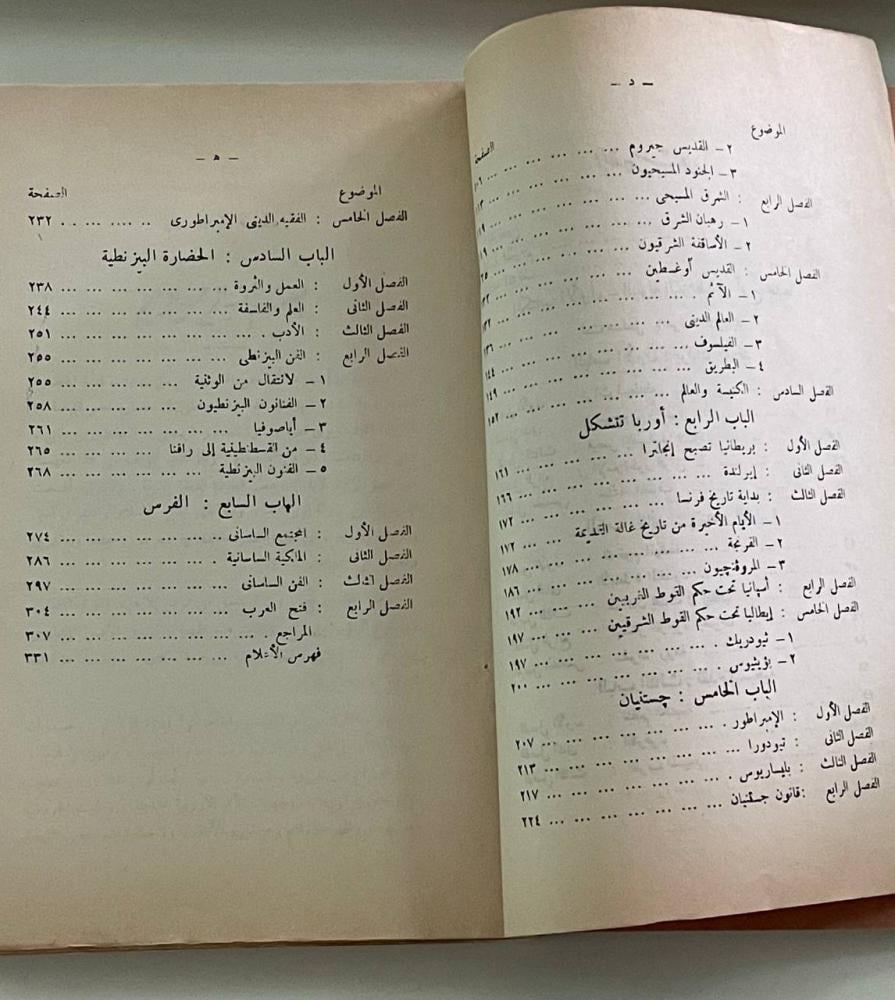 — د —
الموضوع الصفحة
٢ – القديس جيروم ... ... ... ... ... ١٠٦
٣ – الجنود المسيحيون ... ... ... ... ...
الفصل الرابع : الشرق المسيحى ... ... ... ... ...
١ – رهبان الشرق ... ... ... ... ...
٢ – الأساقفة الشرقيون ... ... ... ... ...
الفصل الخامس : القديس أوغسطين ... ... ... ... ...
١ – الآثم . ... ... ... ... ...
٢ – العالم الدينى ... ... ... ... ...
٣ – الفيلسوف ... ... ... ... ... ١٣٦
٤ – البطريق ... ... ... ... ... ١٤٤
الفصل السادس : الكنيسة والعالم ... ... ... ... ١٤٩
١٥٢
الباب الرابع : أوربا تتشكل
الفصل الأول : بريطانيا تصبح إنجلترا ... ... ... ... ١٦١
الفصل الثانى : إيرلندة ... ... ... ... ... ١٦٦
الفصل الثالث : بداية تاريخ فرنسا ... ... ... ... ١٧٢
١ – الأيام الأخيرة من تاريخ غالة القديمة ... ١٧٢
٢ – الفرنجة ... ... ... ... ... ١٧٨
٣ – المروفنجيون ... ... ... ... ... ١٨٦
الفصل الرابع : أسبانيا تحت حكم القوط الغربيين ... ... ١٩٢
الفصل الخامس : إيطاليا تحت حكم القوط الشرقيين ... ... ١٩٧
١ – ثيودريك . ... ... ... ... ... ١٩٧
٢ – بؤيثيوس . ... ... ... ... ... ٢٠٠
الباب الخامس : چستنيان
الفصل الأول : الإمبراطور . ... ... ... ... ... ٢٠٧
الفصل الثانى : تيودورا ... ... ... ... ... ٢١٣
الفصل الثالث : بليساريوس . ... ... ... ... ... ٢١٧
الفصل الرابع : قانون جستنيان ... ... ... ... ٢٢٤
— ه —
الموضوع الصفحة
الفصل الخامس : الفقيه الدينى الإمبراطورى .. .... ... .. ٢٣٢
الباب السادس : الحضارة البيزنطية
الفصل الأول : العمل والثروة ... ... ... ... ... ٢٣٨
الفصل الثانى : العلم والفلسفة ... ... ... ... ... ٢٤٤
الفصل الثالث : الأدب ... ... ... ... ... ... ٢٥١
الفصل الرابع : الفن البيزنطى ... ... ... ... ... ٢٥٥
١ – لانتقال من الوثنية ... ... ... ... ٢٥٥
٢ – الفنانون البيزنطيون ... ... ... ... ٢٥٨
٣ – أياصوفيا ... ... ... ... ... ٢٦١
٤ – من القسطنطينية إلى رافنا ... ... ... ٢٦٥
٥ – الفنون البيزنطية ... ... ... ... ... ٢٦٨
الباب السابع : الفرس
الفصل الأول : المجتمع الساسانى ... ... ... ... ... ٢٧٤
الفصل الثانى : الملكية الساسانية . ... ... ... ... ٢٨٦
الفصل الثالث : الفن الساسانى ... ... ... ... ... ٢٩٧
الفصل الرابع : فتح العرب ... ... ... ... ... ٣٠٤
المراجع . ... ... ... ... ... ... ٣٠٧
فهرس الأعلام ... ... ... ... ... ٣٣١